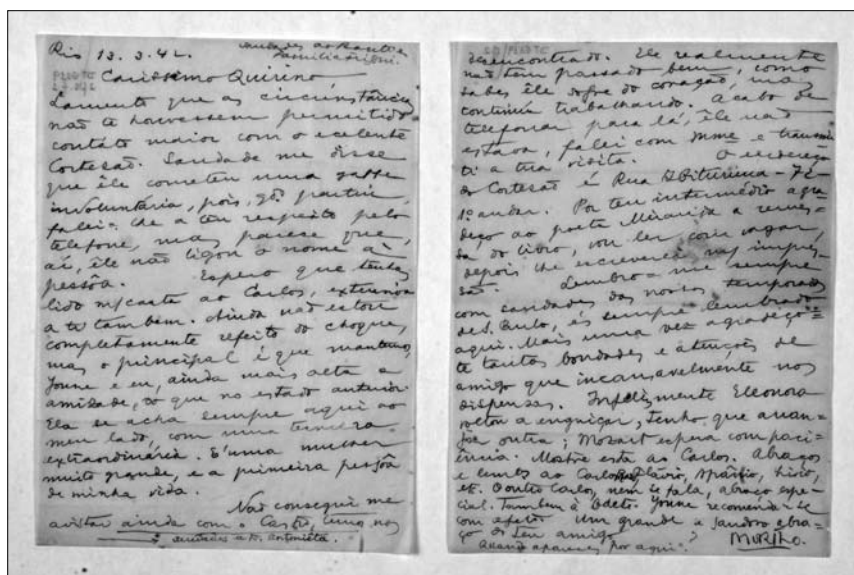 Rio 13.3.42.
saudades ao
Familia
Caríssimo Quirino,
Lamento que as circunstâncias
não te houvessem permitido
contáto maior com o excelente
Cortesão. Saudade me disse
que êle cometeu uma gaffe
involuntária, pois, qdo partiu,
falei-lhe a teu respeito pelo
telefone, mas parece que,
aí, êle não ligou o nome à
pessôa. Espero que tenhas
lido m/carta ao Carlos, extensiva
a te tambem. Ainda não estou
completamente refeito do choque,
mas o principal é que mantemos,
Yonne e eu, ainda mais alta a
amizade, do que no estado anterior.
Ela se acha sempre aqui ao
meu lado, com uma ternura
extraordinária. É uma mulher
muito grande, e a primeira pessôa
de minha vida.
Não consegui me
avistar ainda com o Castro, temo-nos
saudades a D. Antonieta.
desencontrado. Ele realmente
não tem passado bem, como
sabes êle sofre do coração, mas
continúa trabalhando. Acabo de
telefonar para lá, êle não
estava, falei com Mme e transmi-
ti a tua visita. O endereço
do Cortesão é Rua
1º andar. Por teu intermédio agra-
deço ao poeta Miranda a remes-
sa do livro, vou ler com vagar,
depois lhe escreverei m/ impres-
são. Lembro-me sempre
com saudades das nossas temporadas
de S. Paulo, és sempre lembrado
aqui. Mais uma vez agradeço-
te tantas bondades e atenções de
amigo que incansavelmente nos
dispensas. Infelizmente Eleonora
voltou a enguiçar, tenho que arran-
jar outra; Mozart espera com paci-
ência. Mostre esta ao Carlos. Abraços
e lembs ao Carlos, Flávio, Livio,
etc. O outro Carlos, nem se fala, abraço espe-
cial. Tambem à Odete. Yonne recomenda-se
com afeto. Um grande e saudoso abra-
ço do teu amigo
MURILO.
Quando apareces por aqui?